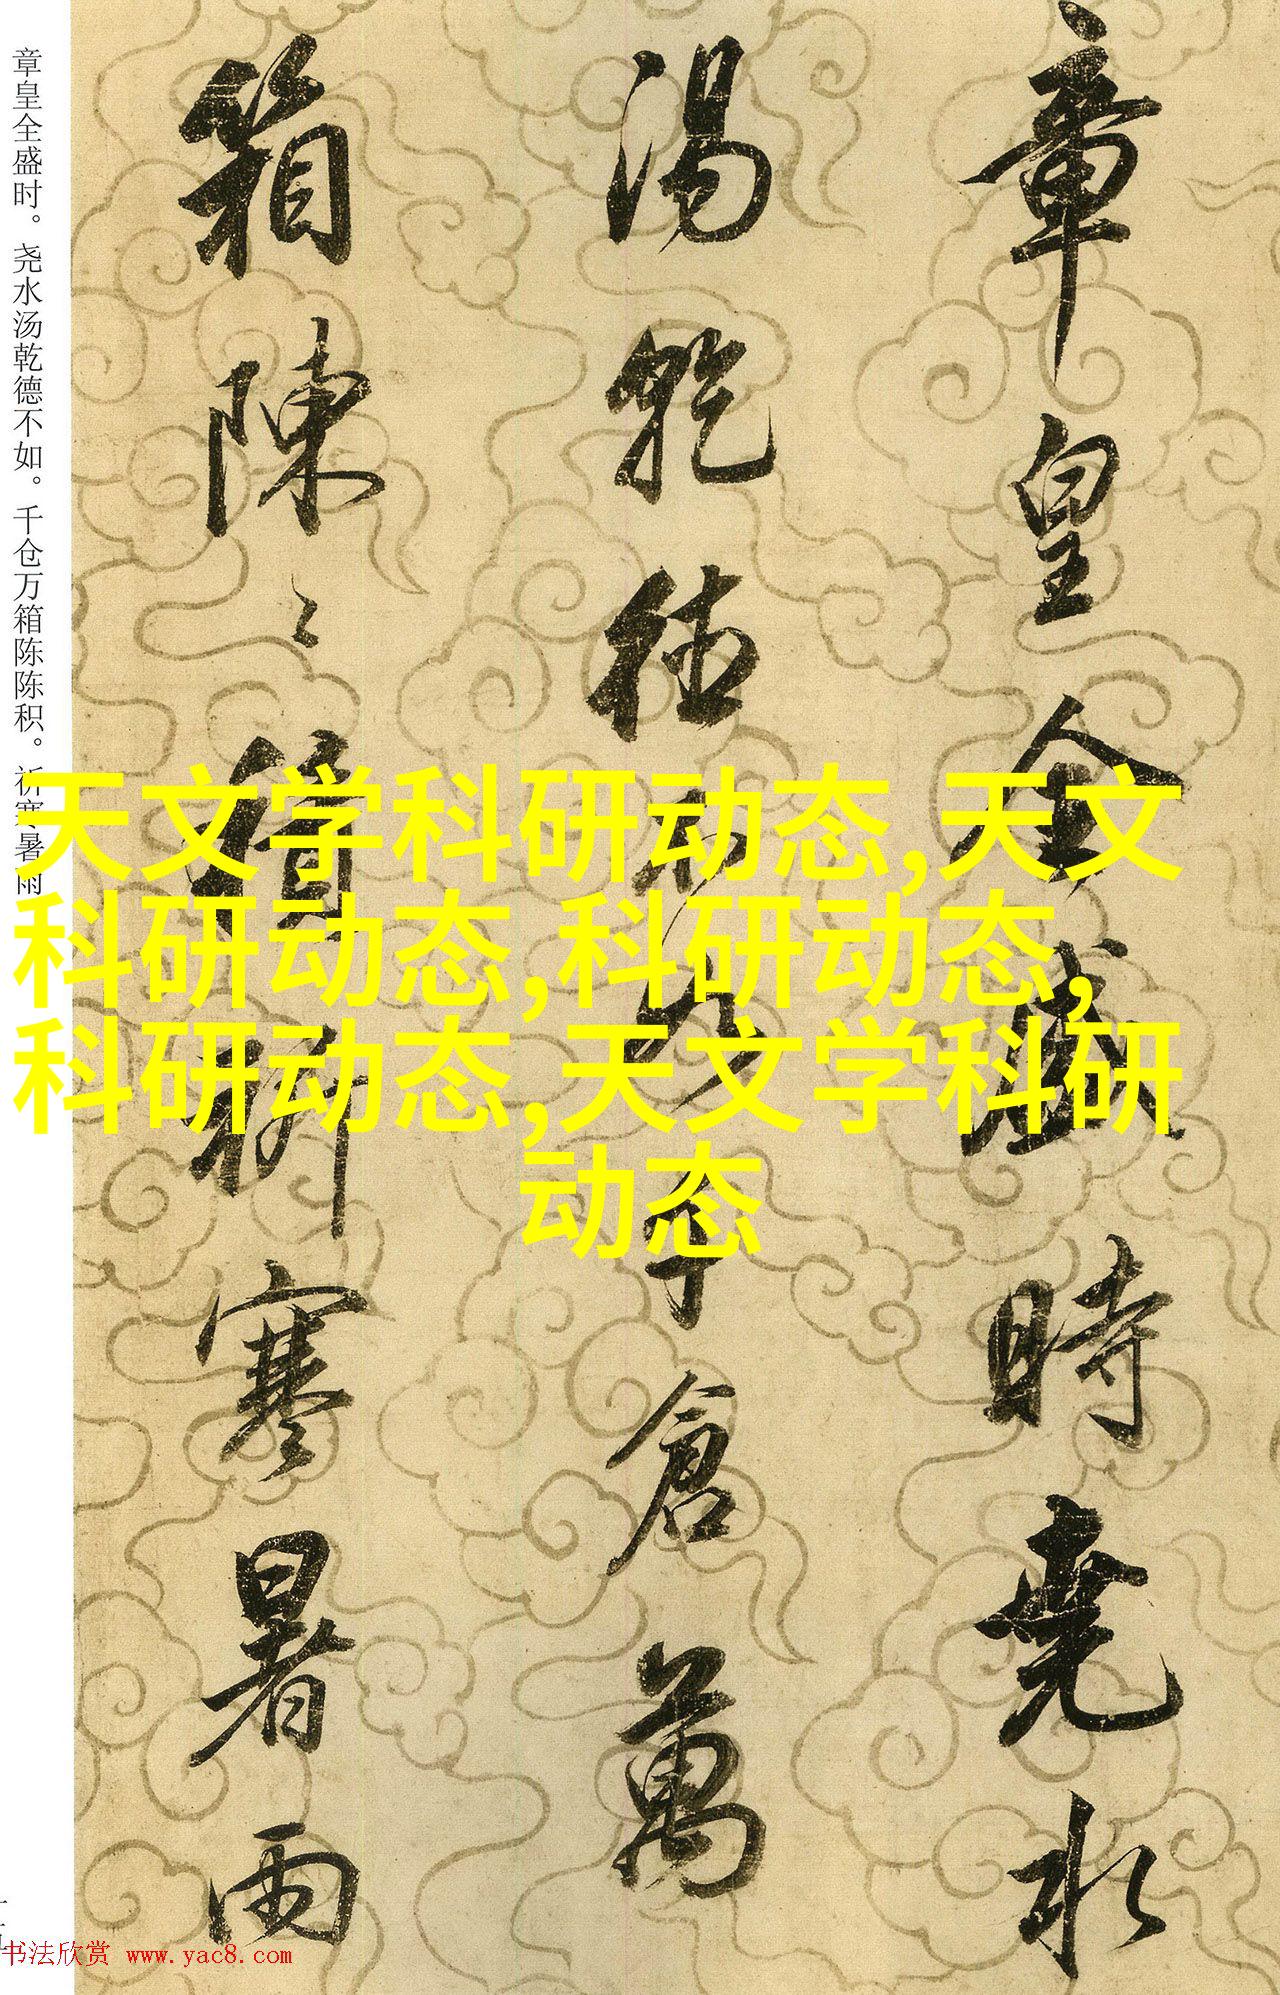 章皇全盛時堯水
湯乾德不如千倉萬
箱陳〻積祈寒暑雨
章皇全盛时。尧水汤乾德不如。千仓万箱陈陈积。祈寒暑雨
天文学科研动态,天文
科研动态,科研动态,
科研动态,天文学科研
动态
书法欣赏 www.yac8.com